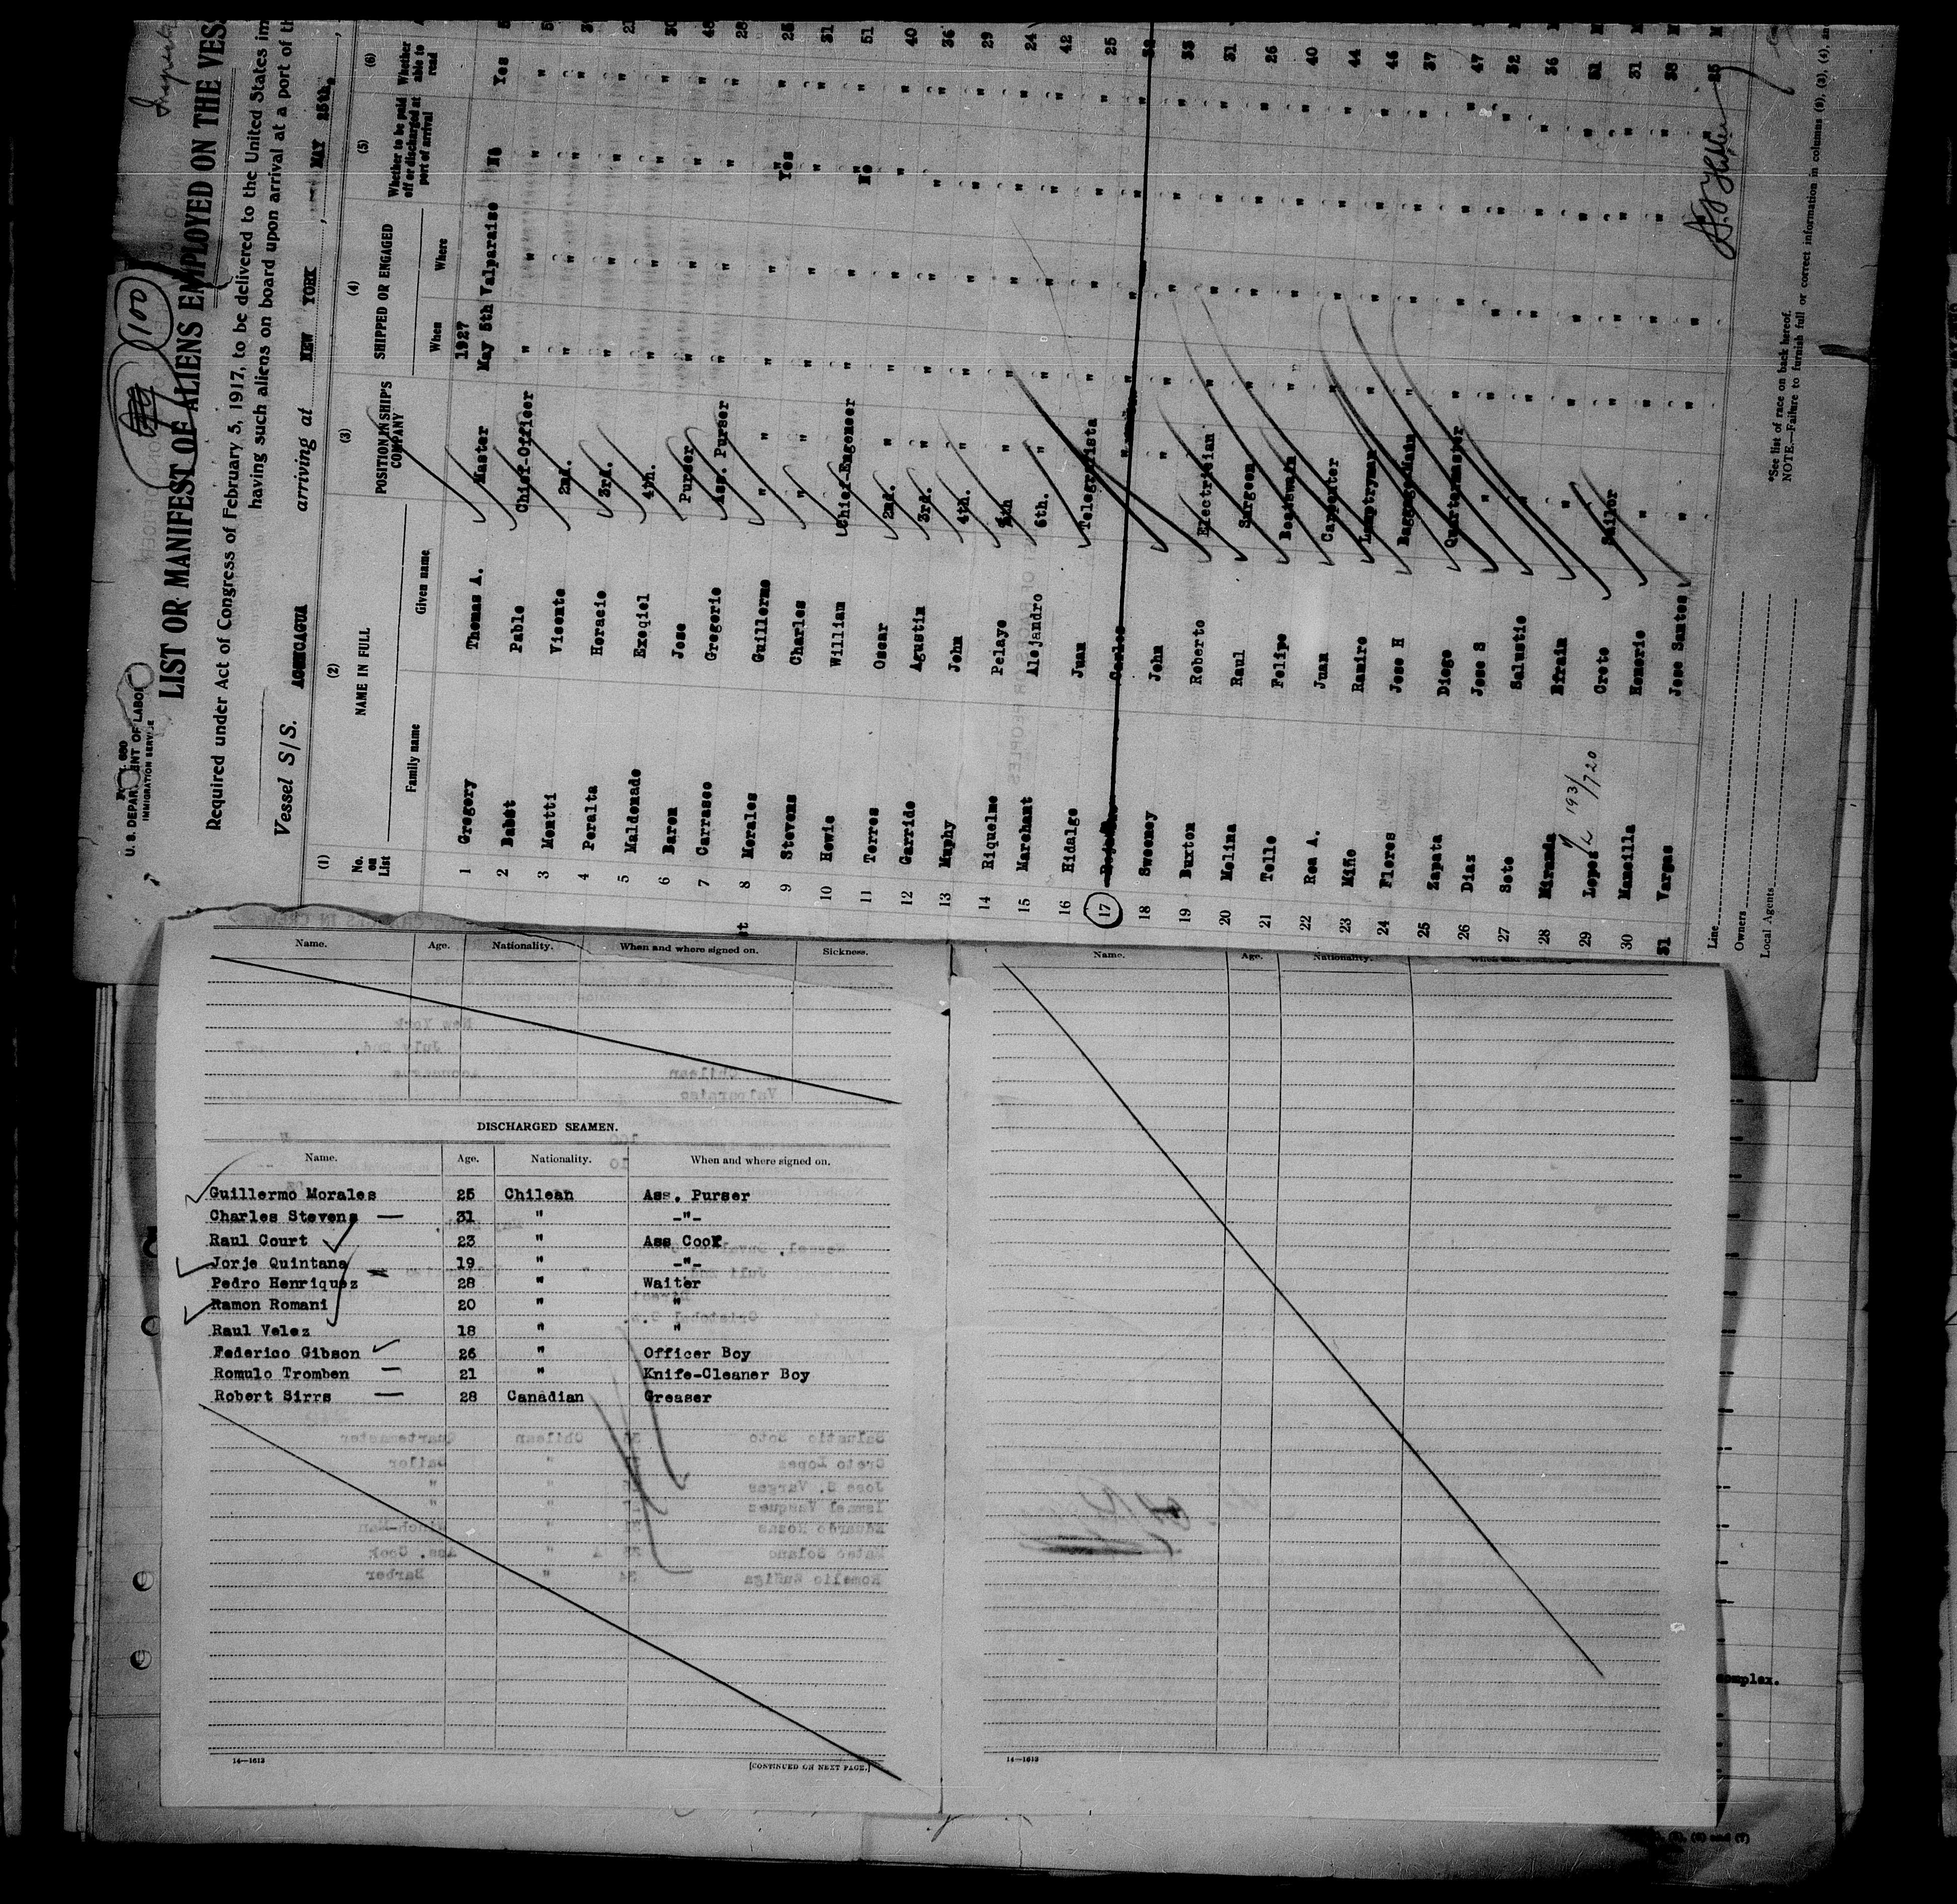 U. S. DEPARTMENT OF LABOR
IMMIGRATION SERVICE
LIST OR MANIFEST OF ALIENS EMPLOYED ON THE VES
Required under Act of Congress of February 5, 1917, to be delivered to the United States im
having such aliens on board upon arrival at a port of th
Vessel S/S. ACONCAGUA arriving at NEW YORK, MAY 25th,
(1) (2) (3) (4) (5) (6)
No. on List NAME IN FULL POSITION IN SHIP'S COMPANY SHIPPED OR ENGAGED Whether to be paid off or discharged at port of arrival Whether able to read
Family name Given name When Where
1927
1 Gregory Thomas A. Master May 5th Valparaiso No Yes
2 Babët Pablo Chief-Officer " " " "
3 Montti Vicente 2nd. " " " "
4 Peralta Horacio 3rd. " " " "
5 Maldonado Exeqiel 4th. " " " "
6 Baron Jose Purser " " " "
7 Carrasco Gregorio Ass. Purser " " " "
8 Morales Guillermo " " " Yes " 25
9 Stevens Charles " " " " " 31
10 Howie Willian Chief-Engeneer " " No " 51
11 Torres Oscar 2nd. " " " " 40
12 Garrido Agustin 3rd. " " " " 36
13 Muphy John 4th. " " " " 29
14 Riquelme Pelayo 5th " " " " 24
15 Marchant Alejandro 6th. " " " " 42
16 Hidalgo Juan Telegrafista " " " " 25
17 Carlos " " " "
18 Sweeney John " " " " "
19 Buxton Roberto Electrisian " " " " 31
20 Molina Raul Surgeon " " " " 26
21 Tello Felipe Boatswain " " " " 40
22 Rea A. Juan Carpenter " " " " 44
23 Miño Ramiro Lamptryman " " " " 46
24 Flores Jose H Baggageman " " " " 37
25 Zapata Diego Quartermaster " " " " 47
26 Diaz Jose S " " " " " 32
27 Soto Salustio " " " " " 36
28 Miranda Efrain " " " " "
29 Lopez Creto Sailor " " " " 31
193/720
30 Mansilla Honorio " " " " " 38
31 Vargas Jose Santos " " " " " 25
Line
Owners
Local Agents
*See list of race on back hereof.
NOTE.—Failure to furnish full or correct information in columns (2), (3), (4), an
Name. Age. Nationality. When and where signed on. Sickness.
DISCHARGED SEAMEN.
Name. Age. Nationality. When and where signed on.
Guillermo Morales 25 Chilean Ass. Purser
Charles Stevens 31 " -"-
Raul Court 23 " Ass Cook
Jorje Quintana 19 " -"-
Pedro Henriquez 28 " Waiter
Ramon Romani 20 " "
Raul Velez 18 " "
Federico Gibson 26 " Officer Boy
Romulo Tromben 21 " Knife-Cleaner Boy
Robert Sirrs 28 Canadian Greaser
14—1613
[CONTINUED ON NEXT PAGE.]
Name. Age. Nationality.
14—1613
complex.